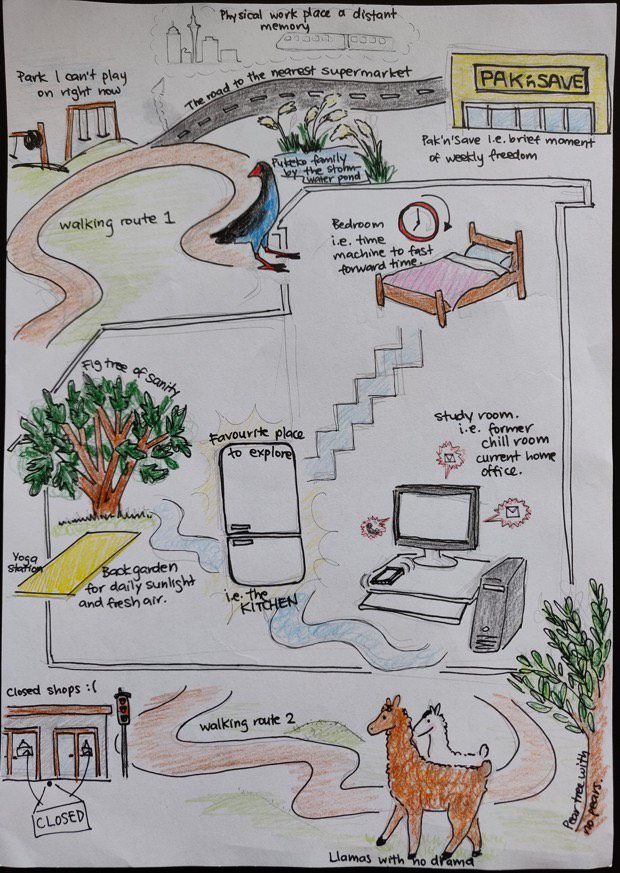 Physical work place a distant
memory
Park I can't play
on right now
The road to the nearest supermarket
PAK'nSAVE
Pak'n'Save i.e. brief moment
of weekly freedom
Pukeko family
by the storm-
water pond
walking route 1
Bedroom
i.e. time
machine to fast
forward time.
Fig tree of sanity
Favourite place
to explore
i.e. the
KITCHEN
study room.
i.e. former
chill room
current home
office.
Yoga
station
Back garden
for daily sunlight
and fresh air.
Closed shops :(
CLOSED
walking route 2
Llamas with no drama
Pear tree with
no pears.